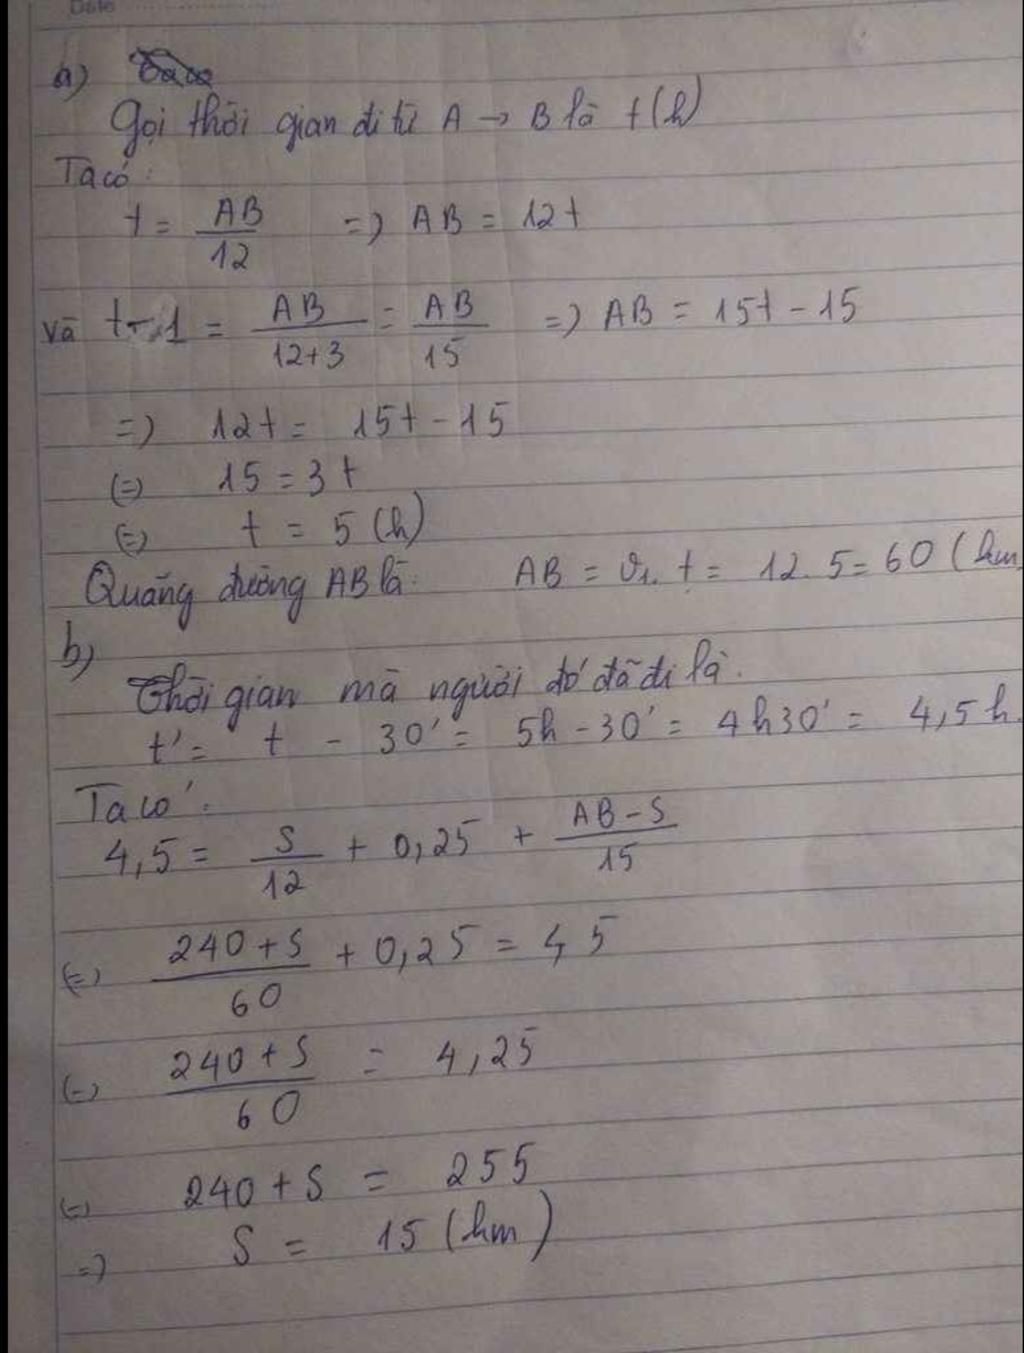 Date
a)
Gọi thời gian đi từ A → B là t(h)
Ta có:
t = AB/12 => AB = 12t
và t - 1 = AB/12+3 = AB/15 => AB = 15t - 15
=> 12t = 15t - 15
(=) 15 = 3t
(=) t = 5 (h)
Quãng đường AB là: AB = v1. t = 12. 5 = 60 (km
b)
Thời gian mà người đó đã đi là.
t' = t - 30' = 5h - 30' = 4h30' = 4,5h.
Ta có:
4,5 = S/12 + 0,25 + AB-S/15
(=) 240+S/60 + 0,25 = 4,5
(=) 240+S/60 = 4,25
(=) 240 + S = 255
=) S = 15 (km)